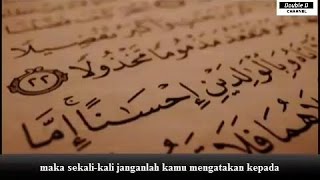 Double D
CHANNEL
فَتَقْعُدَ مَذْمُومًا مَّخْذُولًا ٢٢
وَبِالْوَٰلِدَيْنِ إِحْسَٰنًا ۚ إِمَّا
هُمَا فَلَا
maka sekali-kali janganlah kamu mengatakan kepada